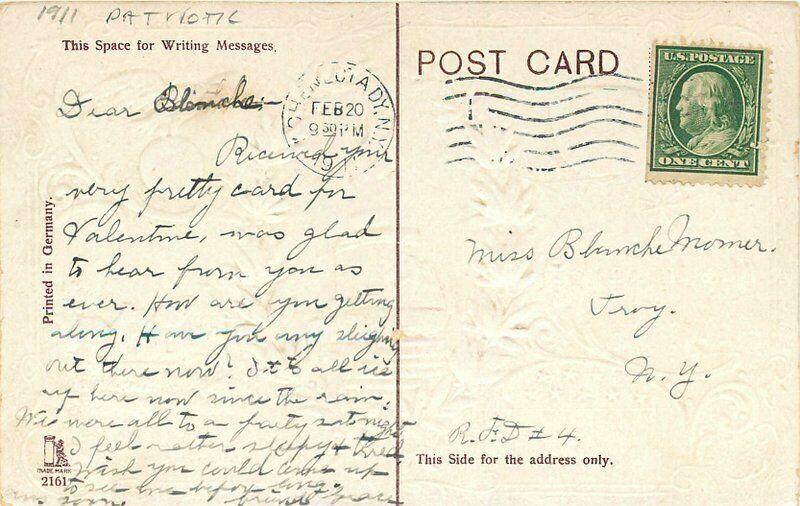 1911 PATRIOTIC
This Space for Writing Messages.
Dear Blanche:-
Received your
very pretty card for
Valentine, was glad
to hear from you as
ever. How are you getting
along. Have you any sleighing
out there now? It is all ice
up here now since the rain.
We were all to a party sat night
I feel rather sleepy & tired,
Wish you could come up
to see me before long.
ans soon. friend Grace
Printed in Germany.
TRADE MARK
2161
POST CARD
SCHENECTADY, N.Y.
FEB 20
9 30 PM
U.S. POSTAGE
ONE CENT
Miss Blanche Momer.
Troy.
N.Y.
R.F.D # 4.
This Side for the address only.